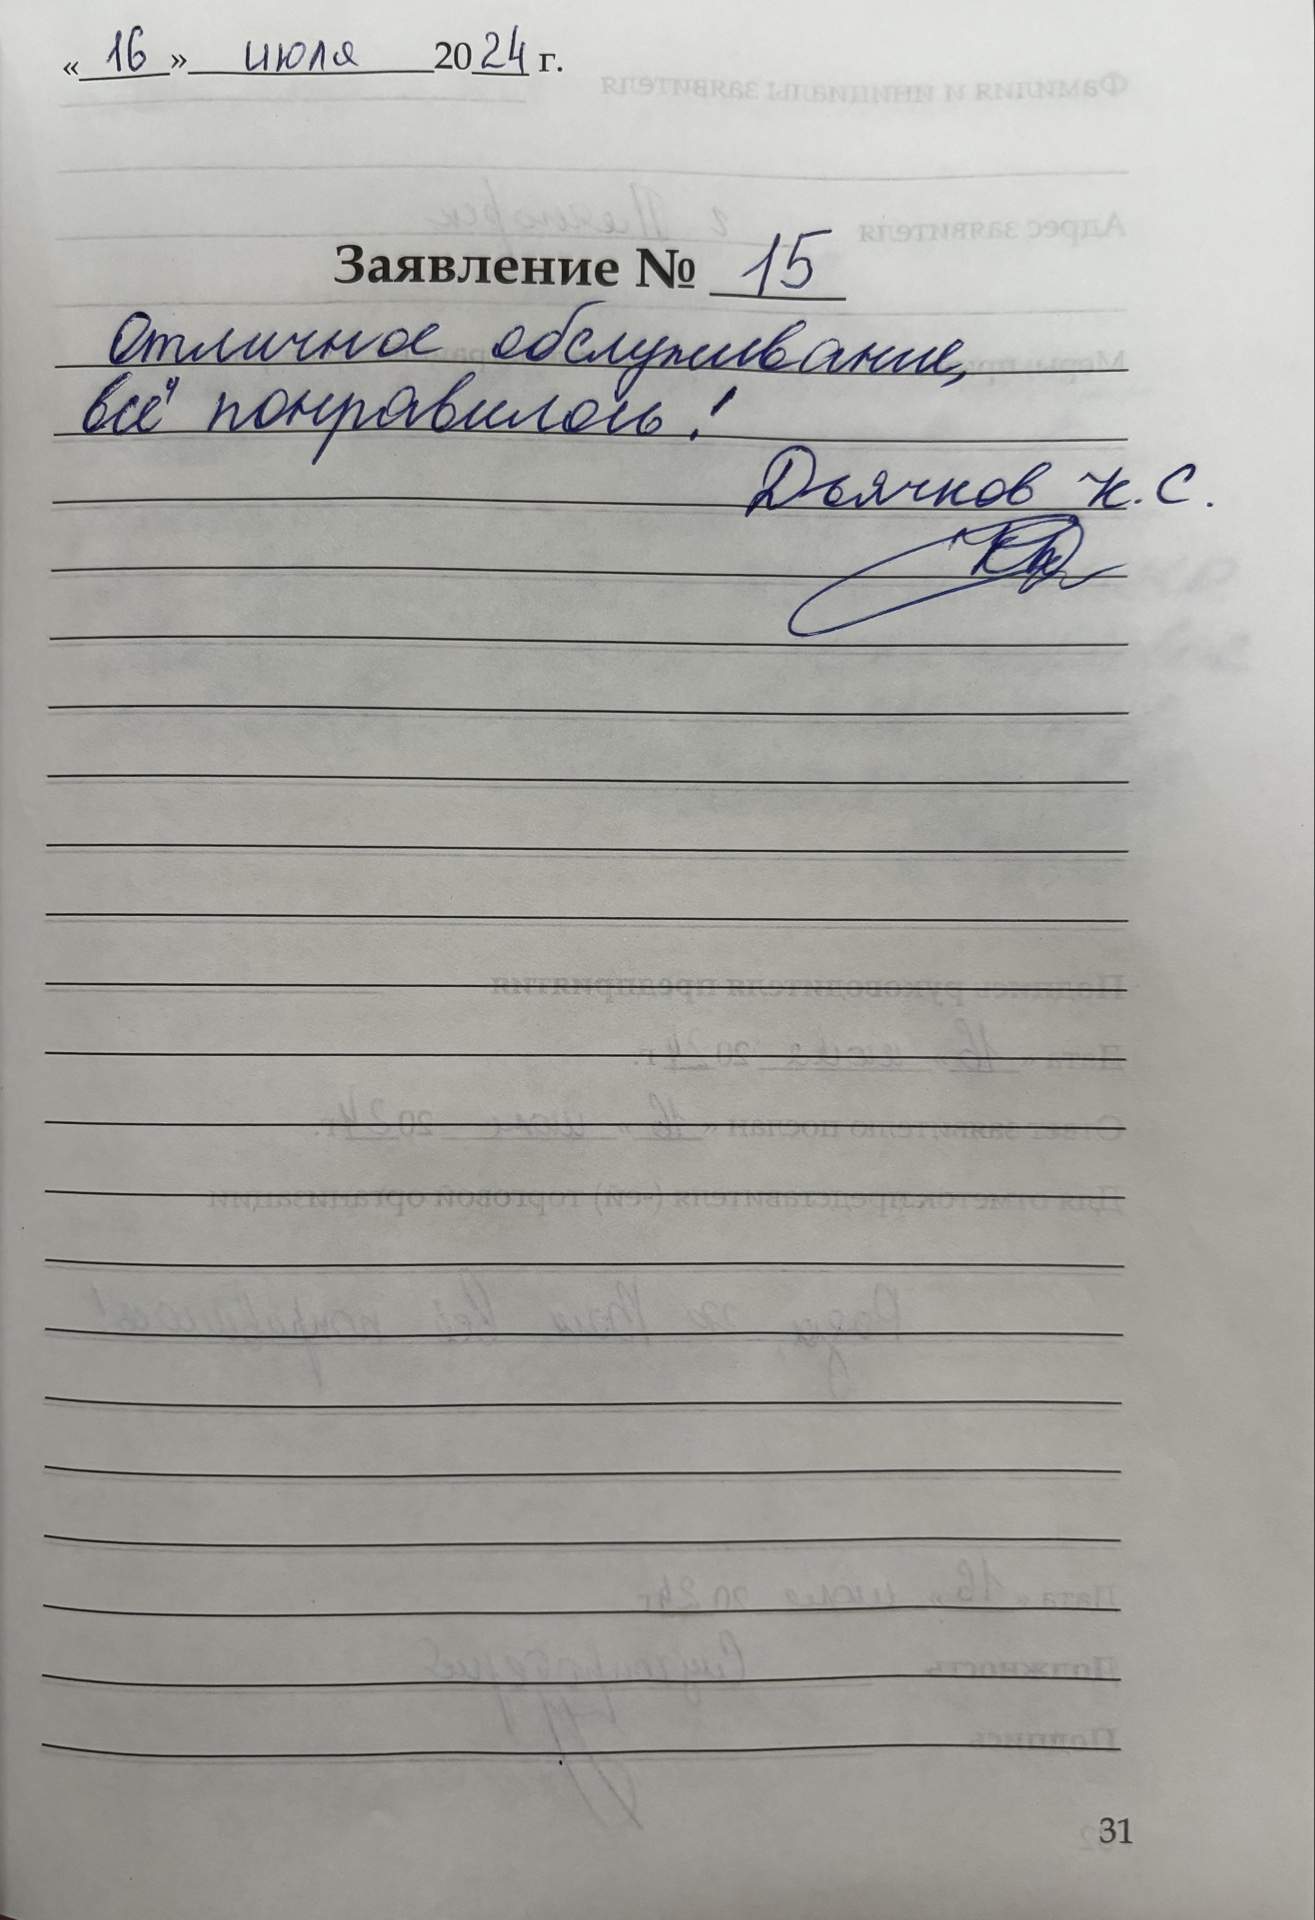 «16» июля 2024 г.
Заявление № 15
Отличное обслуживание,
всё понравилось!
Дьячков К. С.
31